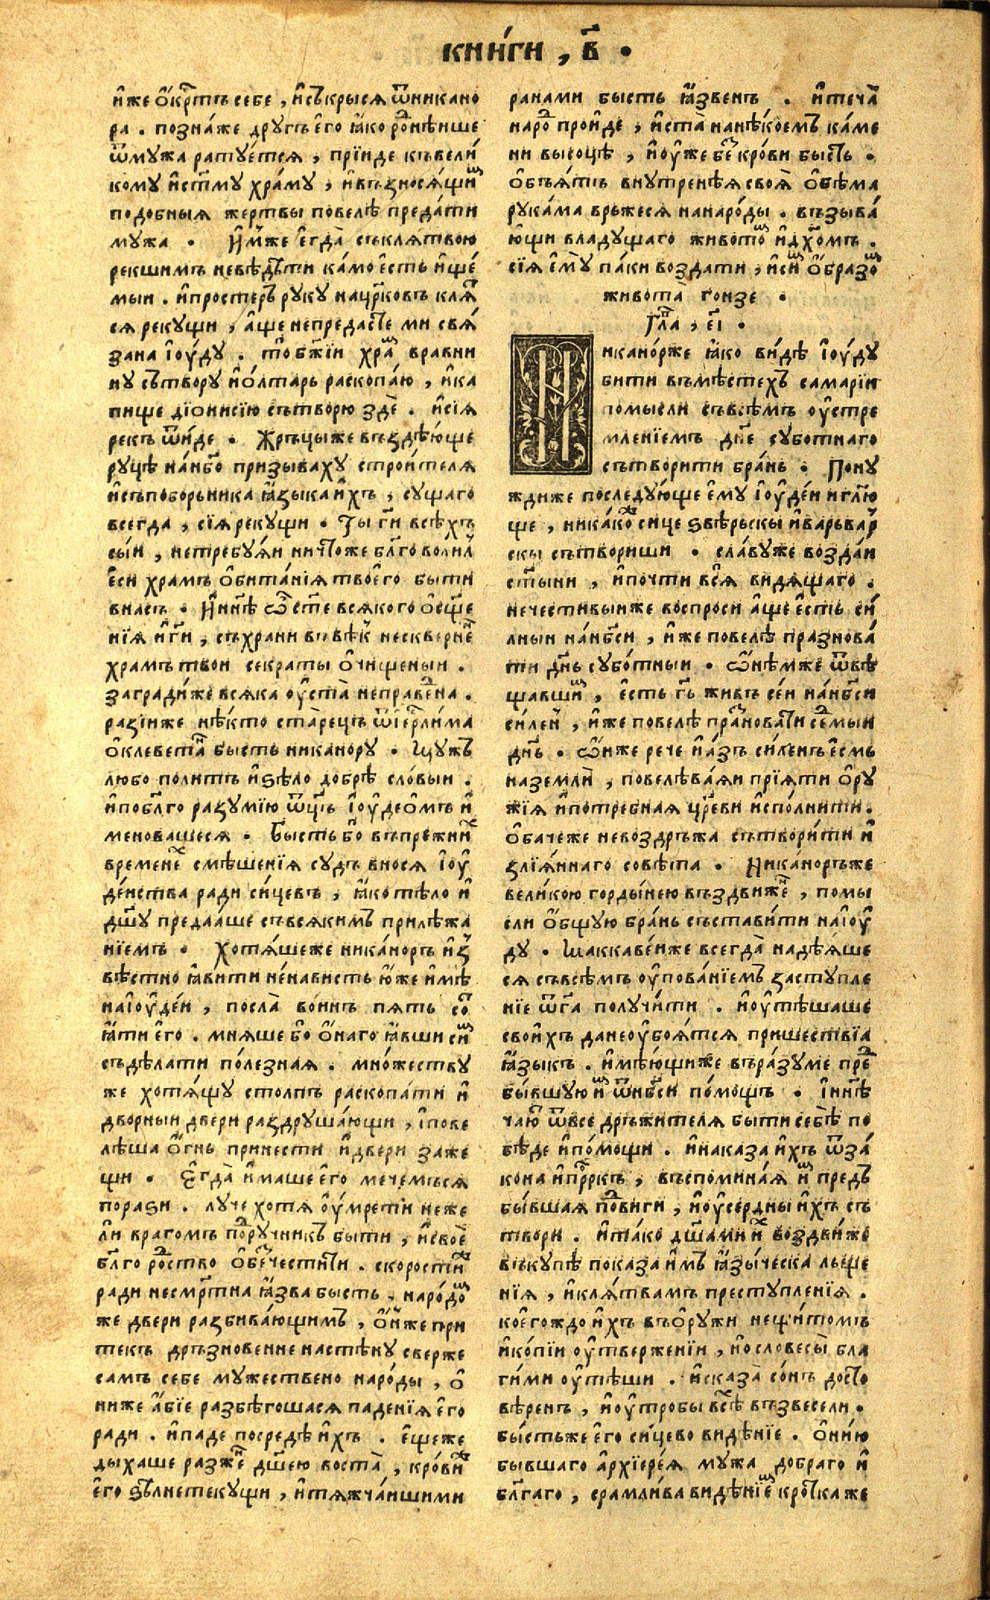 книги , в҃ •
иже ѻ҆крⷭ҇тъ себе , и҆съкрыся ѿникано
ра . позна́же другъ є҆го ꙗ҆ко ро́внѣише
ѿмужа ратуе́тся , прїиде къвели́
кому и҆ст҃му храму , и҆възнося́щиⷨ
подобныя жертвы повелѣ преда́ти
мужа . И҆мже є҆гда̀ съклятвою
рекшимъ невѣдѣти ка́мо есть и҆ще́
мыи . и҆простеръ руку нацр҃ковь кля́
ся рекущи , а҆ще непредасте ми свя́
зана і҆ѹ́ду . то бж҃їи храⷨ вравни
ну сътвору и҆о҆лтарь раскопа́ю , и҆ка
пище дїонисїю сътворю здѐ . и҆сїя
рекъ ѿи́де . Жръцы же въздѣю́ще
руцѣ нан҃бо призываху строи́теля
и҆съпоборьника ꙗ҆зыка и҆хъ , сущаго
всегда , сїя рекущи . Ты гн҃и всѣхъ
сы́и , нетребуя́и ничто́же бл҃говоли́л
є҆си храмъ ѻ҆бита́нїя твоего быти
внасъ . И҆нн҃ѣ ст҃е всякого ѻ҆сще
нїя и҆гн҃и , съхрани ввѣк нескверне
храмъ твои секраты ѻ҆чищеныи .
загради́же всяка ѹ҆ста̀ неправена .
разїи же нѣкто ста́рецъ ѿіер҃лима
ѻ҆клевета быстъ никанору . Мужъ
любо политъ и҆ѕѣло добрѣ словыи .
и҆побл҃го разумїю ѿц҃ъ і҆ѹдео́мъ и҆
меновашеся . Бысть бо въпрежниⷯ
времене смѣшенїя судъ внося і҆ѹ
де́иства ради си́цевъ , ꙗ҆ко тѣло и҆
дш҃у предааше съвсякимъ прилѣжа
нїемъ . Хотя́щеже никаноръ и҆з
вѣстно ꙗ҆вити не́нависть ю҆же и҆мѣ
наі҆ѹде́и , посла̀ во́инъ пять со
ꙗ҆ти є҆го . мняше бо ѻ҆наго ꙗ҆вши сиⷨ
съдѣлати по́лезная . мно́жеству
же хотя́щу столпъ раскопа́ти и҆
дворныи двери раздруша́ющи , і҆пове
лѣша ѻ҆гнь принести и҆двери заже
щи . Е҆гда̀ и҆маше є҆го мечемъся
порази . луче хотя ѹ҆мрети неже
ли врагомъ поручникъ быти , и҆свое
бл҃го ро́дство ѻ҆бечестити . скорости
ради несмр҃тна ꙗ҆зва бысть , наро́доⷨ
же двери разбива́ющимъ , ѻ҆н же при
текъ дръзновенне настѣну сверже
самъ себе мужествено наро́ды , ѻ҆
ниже а҆бїе разбѣгошася паденїя є҆го
ради . и҆паде посредѣ и҆хъ . є҆щеже
дыхаше разже дш҃ею воста̀ , кро́ви
є҆го ѕѣлнетекущи , и҆тяжча́ишими
ранами бысть ꙗ҆звенъ . и҆теча
наро про́иде , и҆ста̀ нанѣкоемъ ка́ме
ни высоцѣ , и҆ѹ҆же беⷥ кро́ви бысть .
ѻ҆бъя́тъ внутренѣя своя̀ ѻ҆бѣма
рука́ма врьжеся нанаро́ды . възыва́
ю҆щи владущаго живото́ⷨ и҆дх҃омъ .
сїя є҆му па́ки воздати , и҆сиⷨ ѻ҆бразоⷨ
живота̀ гонзе .
Гла , е҃і .
Никано́рже ꙗ҆ко ви́дѣ і҆ѹду
бити въмѣстехъ самарїи
помысли съвсѣмъ ѹ҆стре
млениемъ дн҃е суботнаго
сътворити бра́нь . Пону
ждиже последу́юще є҆му і҆ѹде́и и҆гл҃ю
ще , ника́ко сице ѕвѣрьскы и҆варьвар
скы сътвориши . сла́вуже возда́и
ст҃ыни , и҆почти вся видя́щаго .
нечестивыи же воспроси а҆ще є҆сть си́
лныи нан҃бси , и҆же повелѣ празнова́
ти дн҃ь субо́тныи . ѻ҆нѣмже ѿвѣ
щавшиⷨ , є҆сть гь҃ живъ се́и нан҃бси
си́лен , и҆же повелѣ празновати се́дмыи
дн҃ь . ѻ҆н же рече и҆а́зъ си́ленъ є҆смь
наземли , повелѣва́яи прїяти ѻ҆ру
жїя и҆потребная цр҃еви и҆спо́лнити .
ѻ҆бачеже невоздръжа сътвори́ти и҆
злїя́ннаго совѣта . Никаноръже
вели́кою горды́нею въздвиже , помы
сли ѻ҆бщую бра́нь съставити наі҆ѹ
ду . Маккаве́иже всегда̀ надѣяше
ся съвсѣмъ ѹ҆пова́нїемъ заступле
нїе ѿга получи́ти . и҆ѹтѣшаше
свои́хъ данеѹ҆боя́тся пришествїа
ꙗ҆зыкъ . и҆мѣющиже въра́зуме пре
бы́вшую иⷨ ѿн҃бси по́мощъ . і҆нн҃ѣ
чаю ѿвсе дръжителя быти себѣ по
бѣде и҆по́мощи . и҆наказа и҆хъ ѿза́
кона и҆пр҃ркъ , въспомина́я иⷨ предъ
бы́вшая подвиги , и҆ѹсе́рдны и҆хъ съ
твори . и҆та́ко дш҃ами иⷯ воздви́же
въкупѣ показа и҆мъ ꙗ҆зы́ческа льеще
нїя , и҆кля́твамъ преступле́нїя .
кое́гождо и҆хъ въѻ҆ружи нещи́томъ
и҆ко́пїи ѹ҆твержении , но словесы̀ бла
ги́ми ѹ҆тѣши . и҆сказа̀ со́нъ досто
вѣренъ , и҆ѹтробы всѣ възвесели .
бы́стьже є҆го си́цево видѣнїе . ѻ҆нїю
бывшаго а҆рхїере́я мужа добраго и҆
бл҃гаго , срамлива видѣнїеⷨ кро́тка же